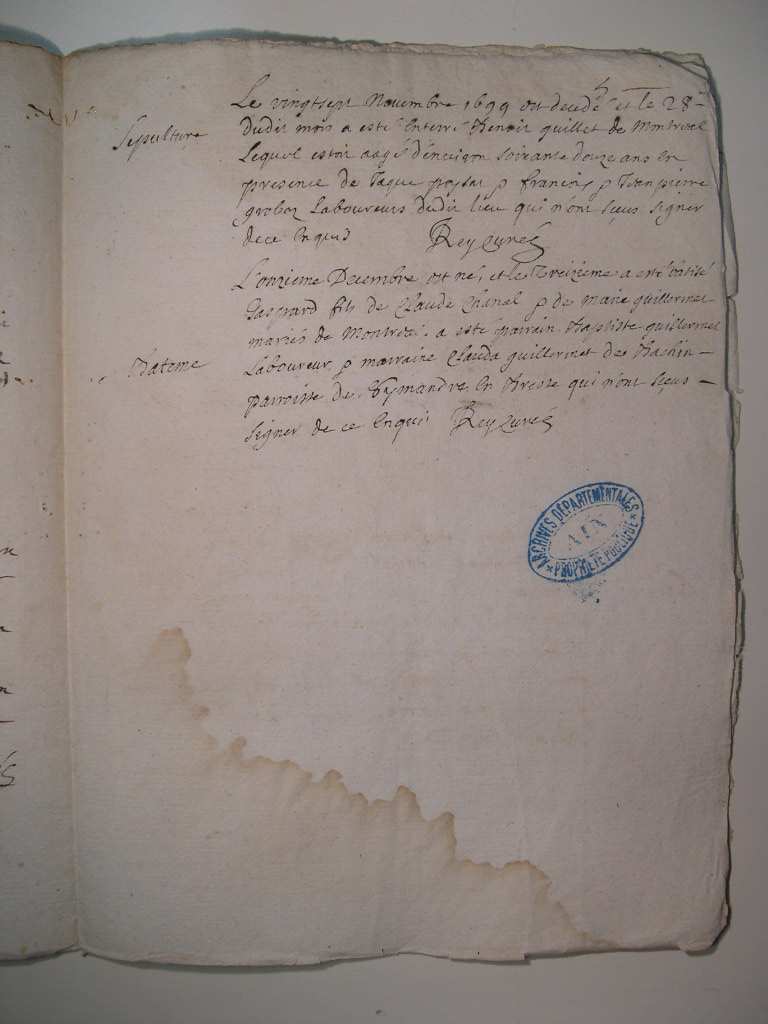 Sepulture
Le vingtsept Novembre 1699 est decedé et le 28
dudit mois a esté enterré Benoit guillet de Montreal
Lequel estoit aagé d'environ soixante douze ans en
presence de Jaque françois Jean pierre
Laboureurs dudit lieu qui n'ont sçeus signer
dece Enquis Rey Curé
Bateme
L'onzieme Decembre est né, et le Treizieme a esté batisé
Gaspard fils de Claude Chanel de Marie guillermet
mariés de Montreal. a esté parrain Baptiste guillermet
Laboureur marraine Clauda guillermet de
parroisse de en Bresse qui n'ont sçeus
signer de ce Enquis Rey Curé
ARCHIVES DÉPARTEMENTALES
AIN
PROPRIÉTÉ PUBLIQUE